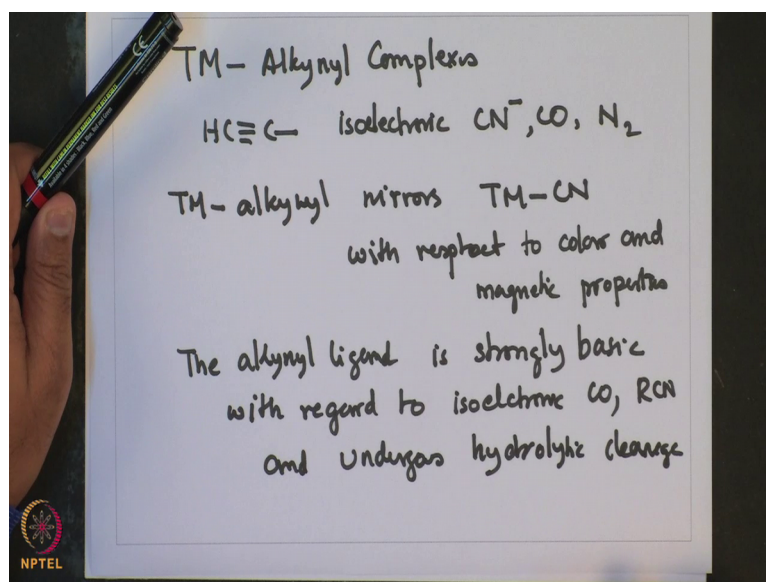 TM- Alkynyl Complexes
HC≡C— isoelectronic CN⁻, CO, N₂
TM- alkynyl mirrors TM-CN
with resphect to color and
magnetic properties
The alkynyl ligand is strongly basic
with regard to isoelctronic CO, RCN
and undergoes hydrolytic cleavage
CE
NPTEL